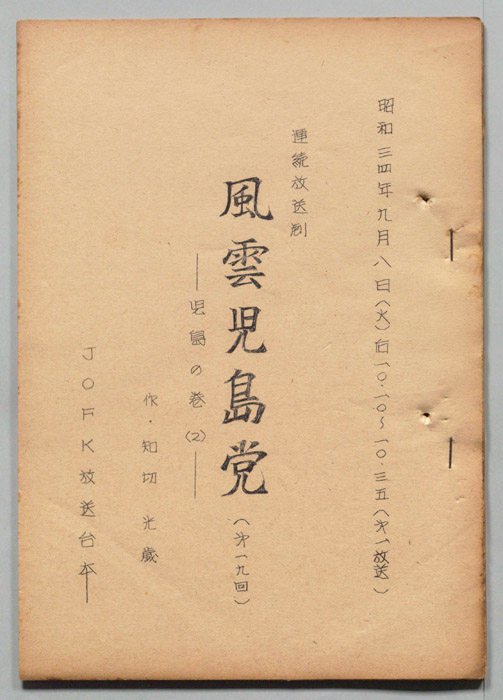 昭和三四年九月八日(火)后一〇・一〇~一〇・三五(第一放送)
連続放送劇
風雲児島党(第一九回)
―児島の巻(2)―
作・知切光歳
JOFK放送台本―